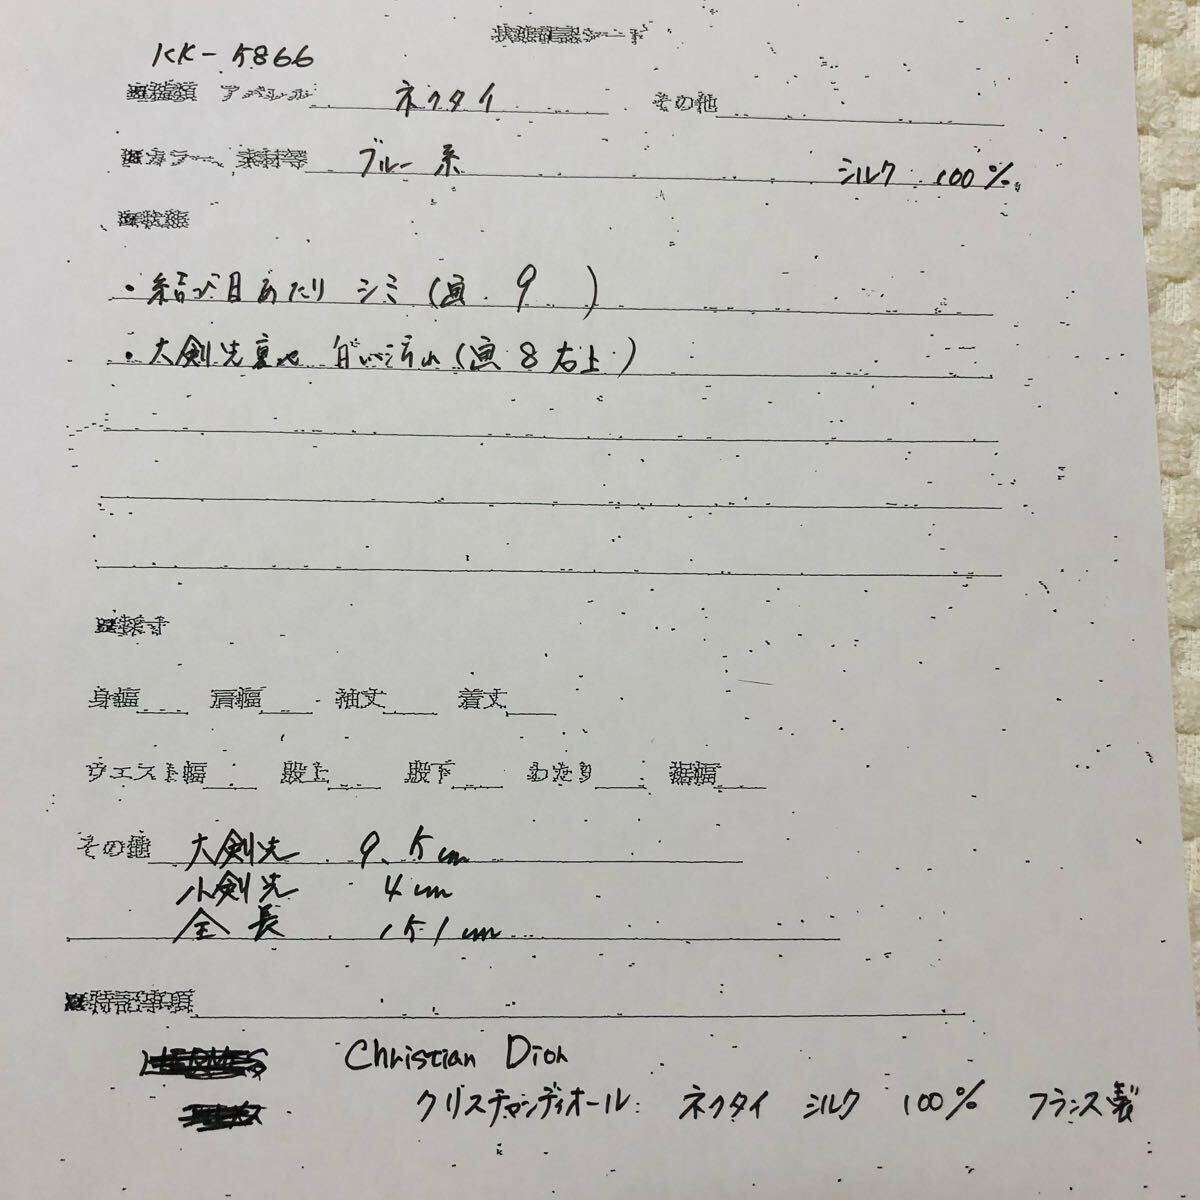 状態確認シート
KK-5866
■種類 アパレル ネクタイ その他
■カラー、素材等 ブルー系 シルク 100%
■状態
・結び目あたり シミ(画 9 )
・大剣先裏 汚れ(画 8 右上)
■採寸
身幅 肩幅 袖丈 着丈
ウエスト幅 股上 股下 わたり 裾幅
その他 大剣先 9.5cm
小剣先 4cm
全長 151cm
■特記事項
Christian Dior
クリスチャンディオール: ネクタイ シルク 100% フランス製